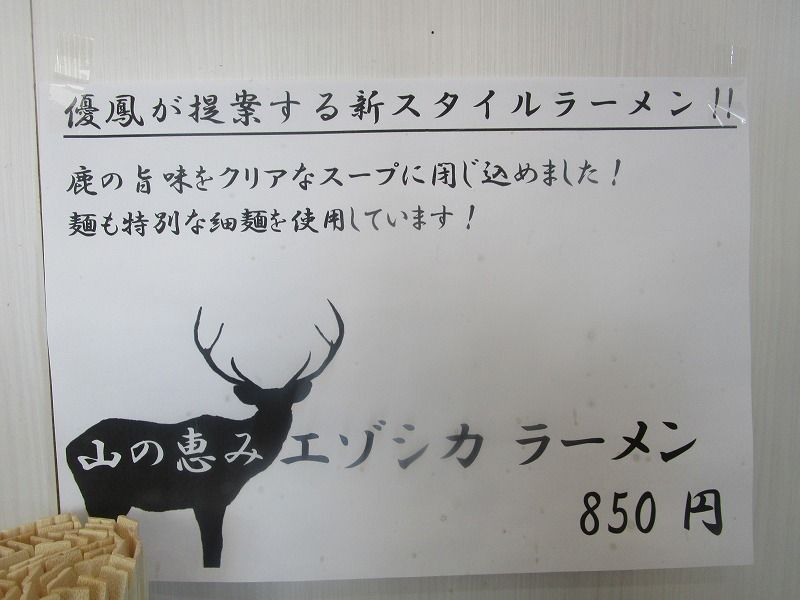 優鳳が提案する新スタイルラーメン!!
鹿の旨味をクリアなスープに閉じ込めました!
麺も特別な細麺を使用しています!
山の恵み エゾシカ ラーメン
850 円